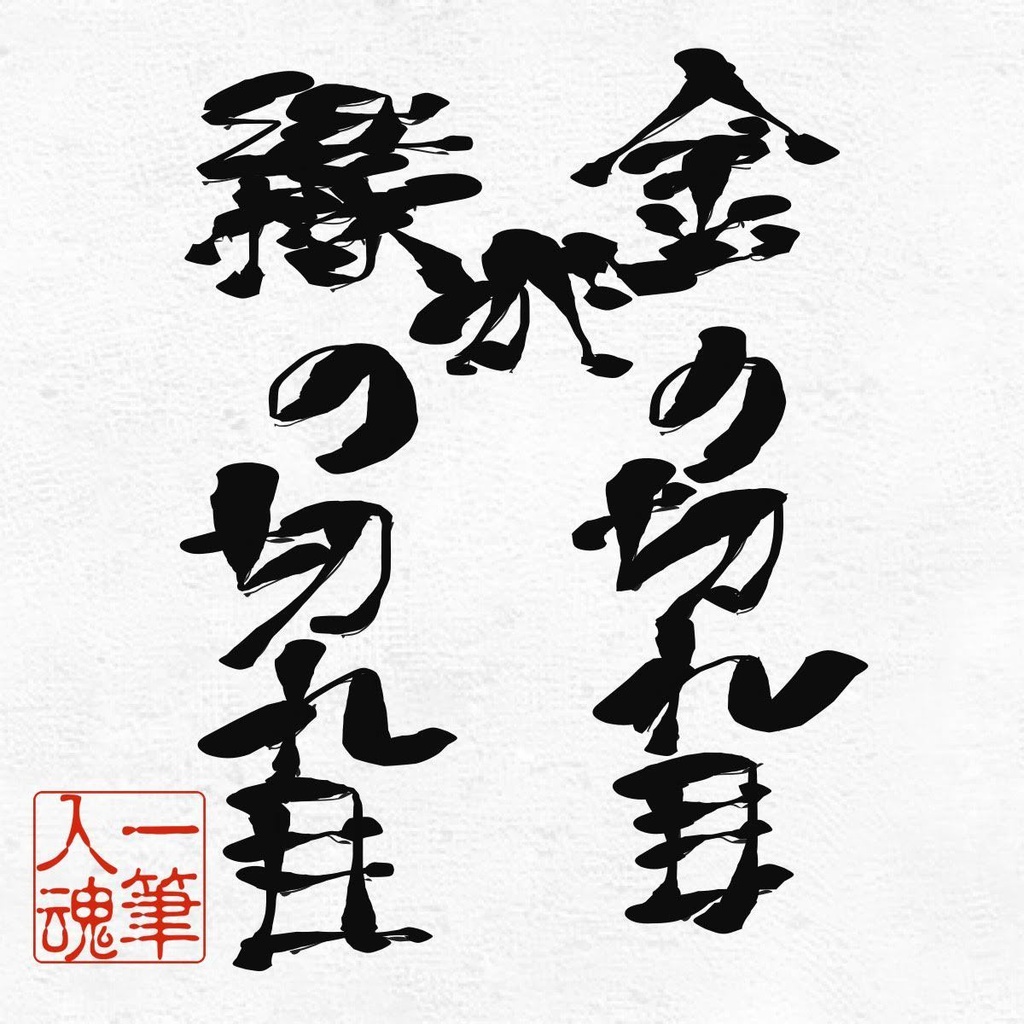 金の切れ目
が
縁の切れ目
一筆
入魂